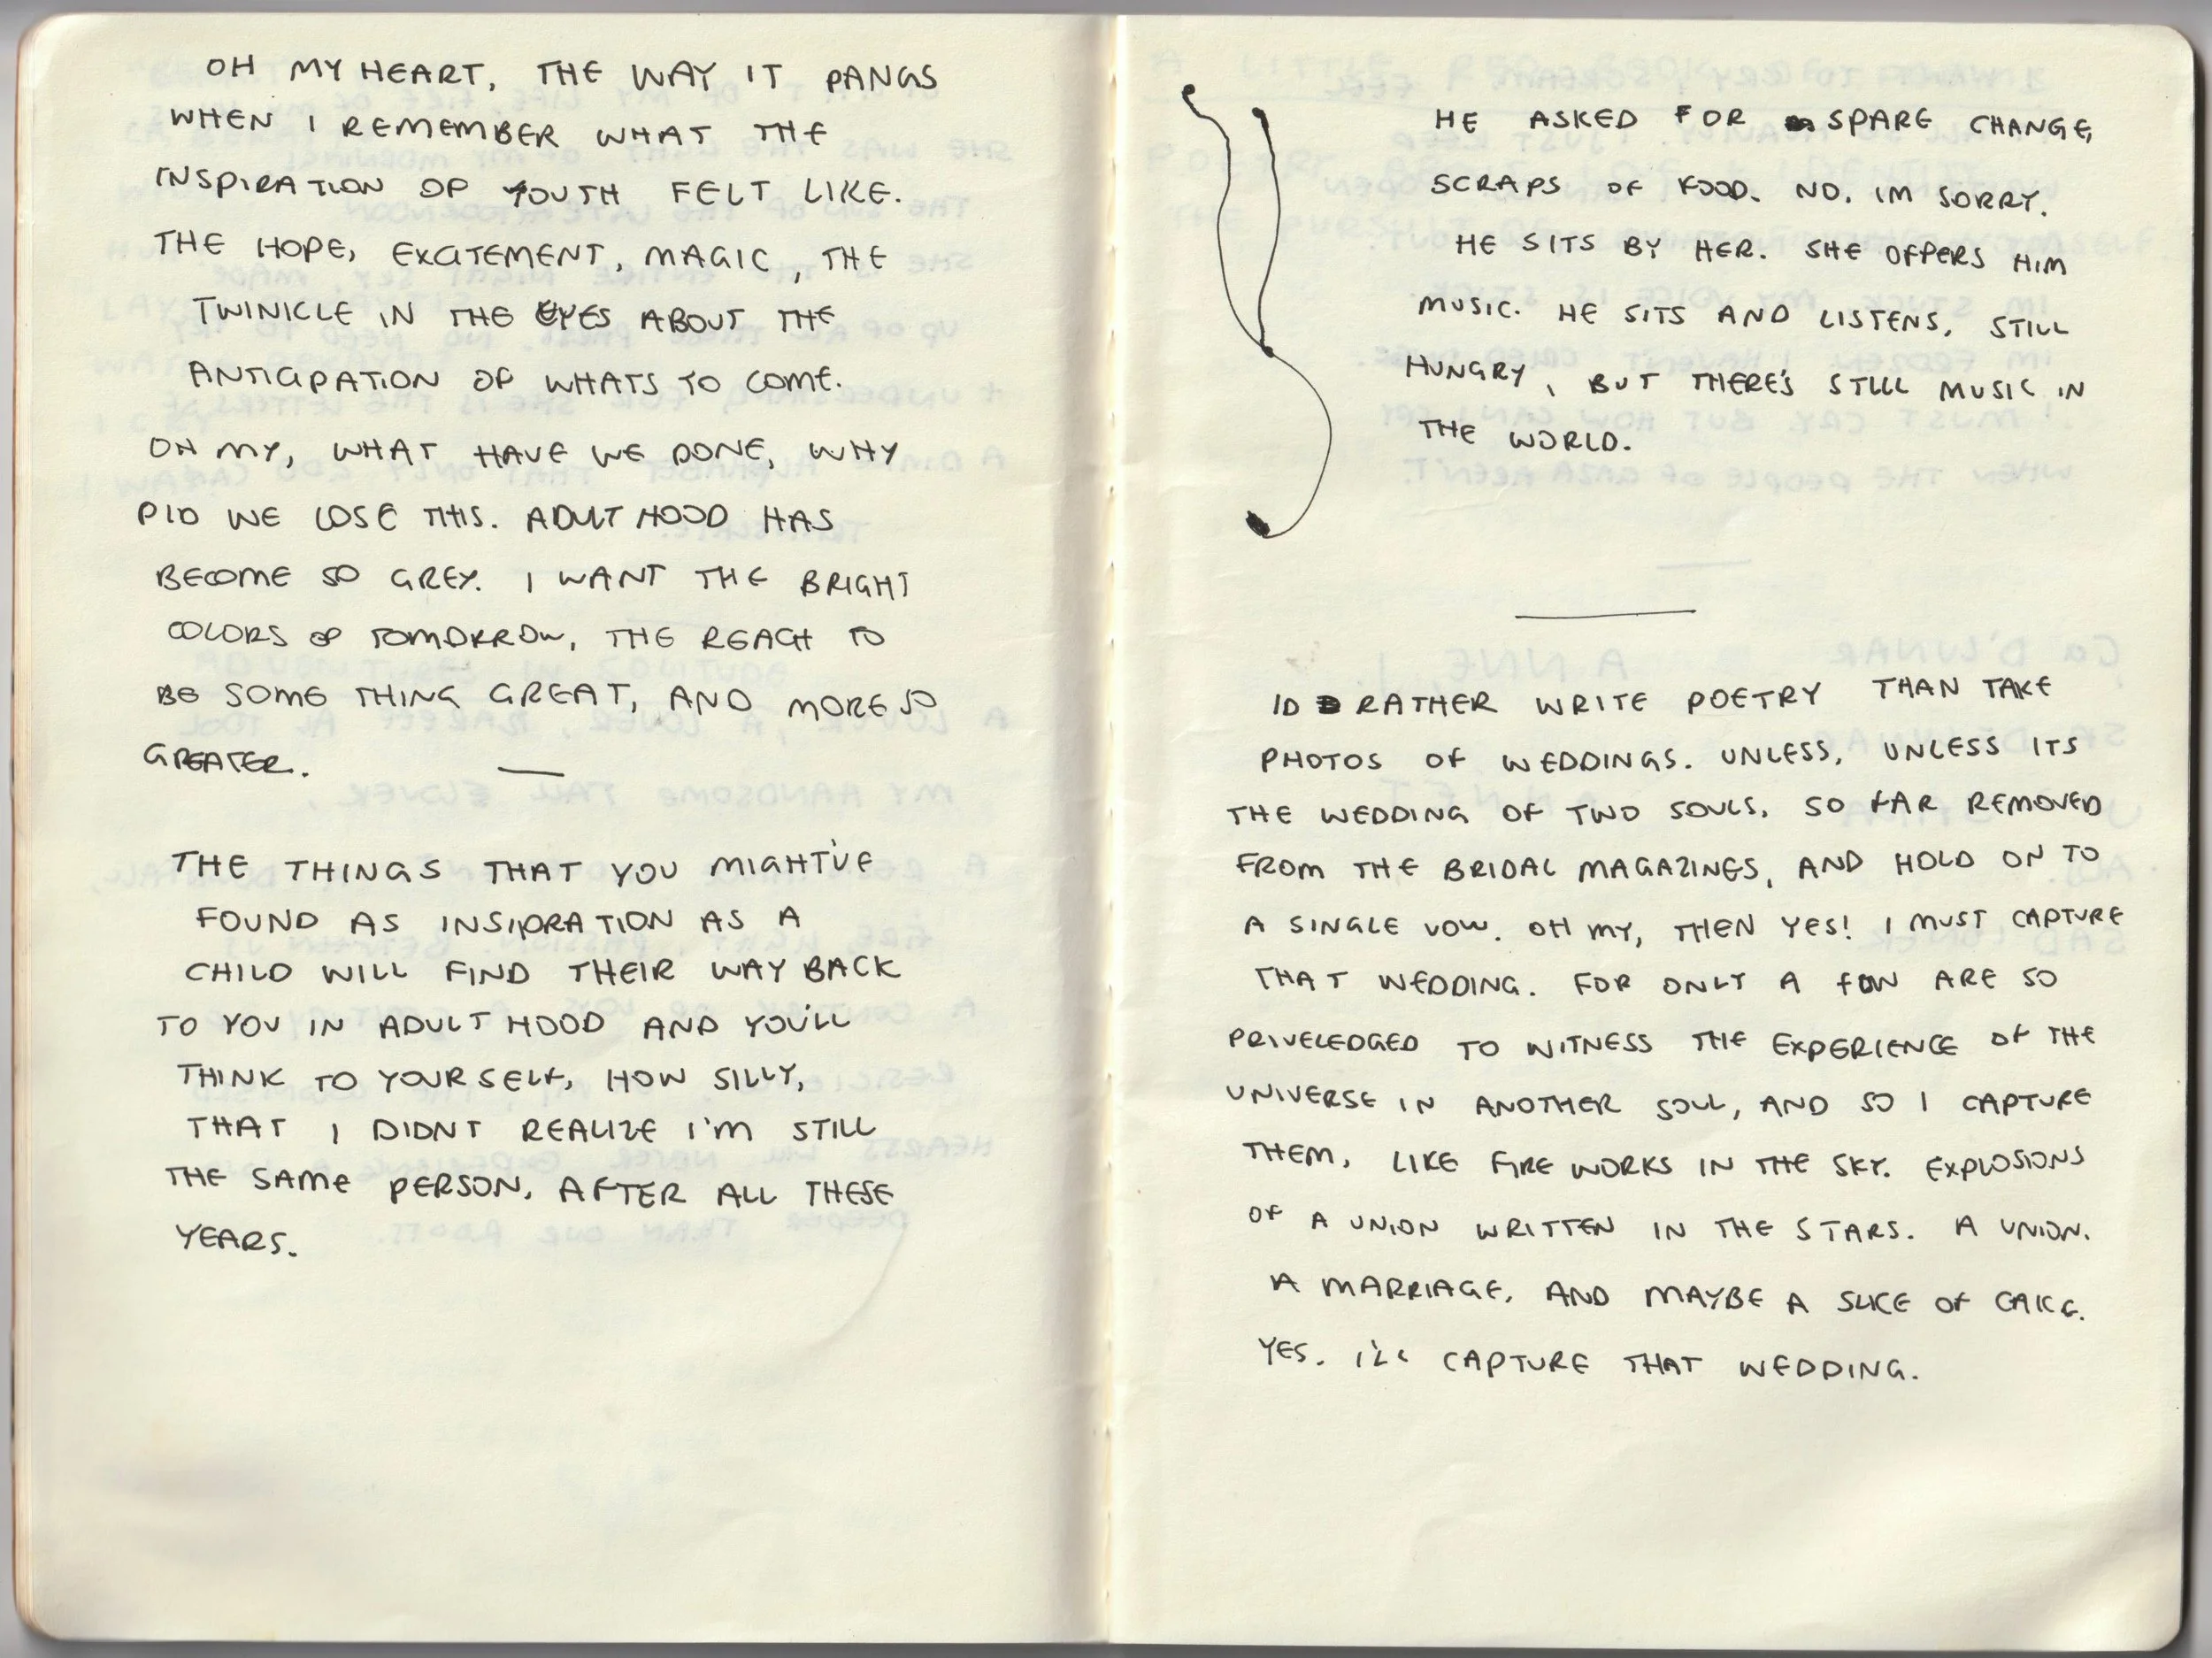 OH MY HEART, THE WAY IT PANGS
WHEN I REMEMBER WHAT THE
INSPIRATION OF YOUTH FELT LIKE.
THE HOPE, EXCITEMENT, MAGIC, THE
TWINKLE IN THE EYES ABOUT THE
ANTICIPATION OF WHATS TO COME.
OH MY, WHAT HAVE WE DONE, WHY
DID WE LOSE THIS. ADULTHOOD HAS
BECOME SO GREY. I WANT THE BRIGHT
COLORS OF TOMORROW, THE REACH TO
BE SOMETHING GREAT, AND MORE SO
GREATER.
THE THINGS THAT YOU MIGHT'VE
FOUND AS INSIPRATION AS A
CHILD WILL FIND THEIR WAY BACK
TO YOU IN ADULTHOOD AND YOU'LL
THINK TO YOURSELF, HOW SILLY,
THAT I DIDNT REALIZE I'M STILL
THE SAME PERSON, AFTER ALL THESE
YEARS.
HE ASKED FOR SPARE CHANGE,
SCRAPS OF FOOD. NO. IM SORRY.
HE SITS BY HER. SHE OFFERS HIM
MUSIC. HE SITS AND LISTENS, STILL
HUNGRY, BUT THERE'S STILL MUSIC IN
THE WORLD.
ID RATHER WRITE POETRY THAN TAKE
PHOTOS OF WEDDINGS. UNLESS, UNLESS ITS
THE WEDDING OF TWO SOULS, SO FAR REMOVED
FROM THE BRIDAL MAGAZINES, AND HOLD ON TO
A SINGLE VOW. OH MY, THEN YES! I MUST CAPTURE
THAT WEDDING. FOR ONLY A FEW ARE SO
PRIVELEDGED TO WITNESS THE EXPERIENCE OF THE
UNIVERSE IN ANOTHER SOUL, AND SO I CAPTURE
THEM, LIKE FIREWORKS IN THE SKY. EXPLOSIONS
OF A UNION WRITTEN IN THE STARS. A UNION.
A MARRIAGE, AND MAYBE A SLICE OF CAKE.
YES. I'LL CAPTURE THAT WEDDING.